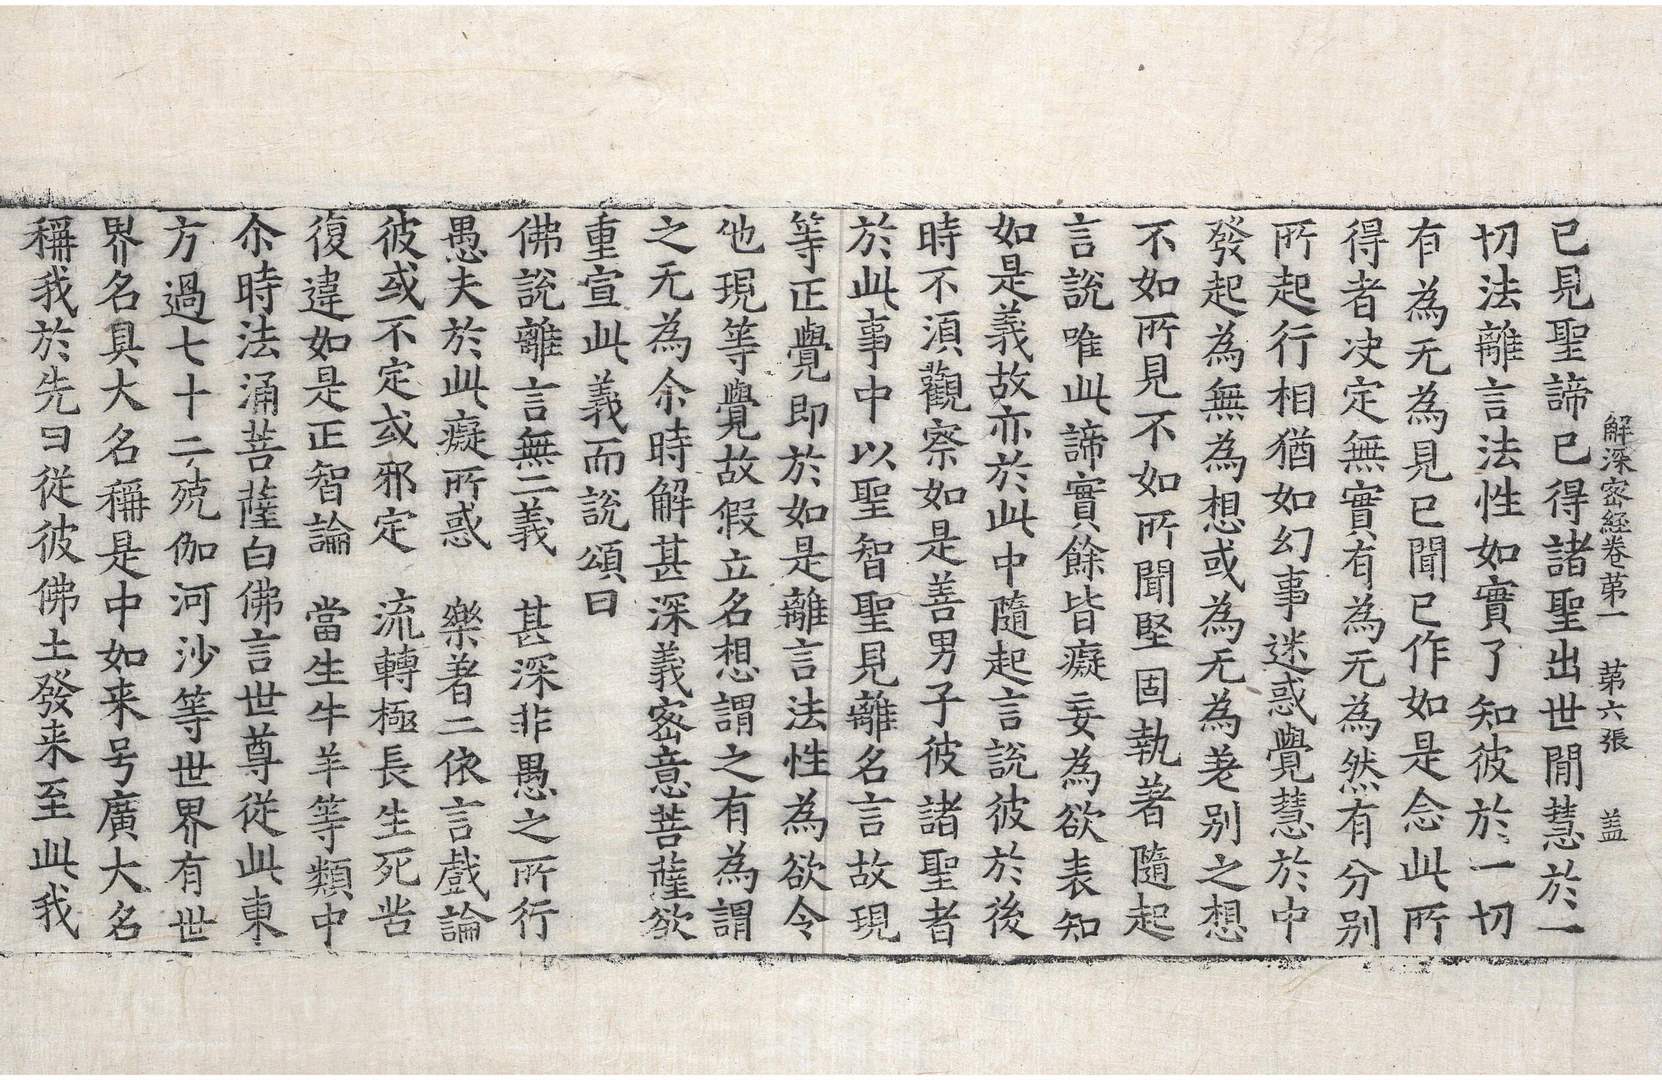 解深密経卷苐一　苐六張　盖
已見聖諦已得諸聖出世閒慧於一
切法離言法性如實了知彼於一切
有為无為見已聞已作如是念此所
得者决定無實有為无為然有分别
所起行相猶如幻事迷惑覺慧於中
發起為無為想或為无為差别之想
不如所見不如所聞堅固執著隨起
言說唯此諦實餘皆癡妄為欲表知
如是義故亦於此中隨起言說彼於後
時不湏觀察如是善男子彼諸聖者
於此事中以聖智聖見離名言故現
等正覺即於如是離言法性為欲令
他現等覺故假立名想謂之有為謂
之无為尒時解甚深義密意菩薩欲
重宣此義而說頌曰
佛說離言無二義　甚深非愚之所行
愚夫於此癡所惑　樂著二依言戲論
彼或不定或邪定　流轉極長生死苦
復違如是正智論　當生牛羊等類中
尒時法涌菩薩白佛言世尊從此東
方過七十二殑伽河沙等世界有世
界名具大名稱是中如来号廣大名
稱我於先日從彼佛土發来至此我